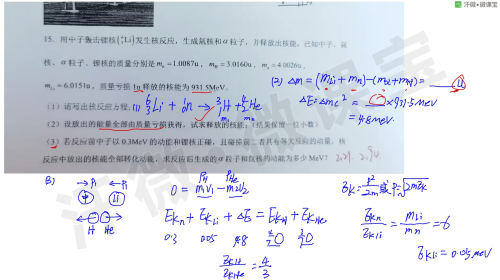 汗微•微课宝
15. 用中子轰击锂核(⁶₃Li)发生核反应，生成氚核和α粒子，并释放出核能，已知中子、氚
核、α粒子、锂核的质量分别是mₙ=1.0087u，m =3.0160u，m =4.0026u，
m_Li=6.0151u，质量亏损1u释放的核能为931.5MeV。
(1) 写出核反应方程；(1) ⁶₃Li + ¹₀n → ³₁H + ⁴₂He
m₁ m₂
(2) 设放出的能量全部由质量亏损获得，试求释放的核能；（结果保留一位小数）
(3) 若反应前中子以0.3MeV的动能和锂核正碰，且碰撞前二者具有等大反向的动量，核
反应中放出的核能全部转化动能，求反应后生成的α粒子和氚核的动能为多少MeV？
(2) Δm = (m_Li + mₙ) - =
ΔE = Δmc² = ×931.5MeV
= 4.8MeV
(3)
中 Li
H He
0 = m₁v₁ - m₂v₂
E_kn + E_kLi + ΔE = E_kH + E_kHe
0.3 0.05 4.8
E_kH/E_kHe = 4/3
E_k = P²/2m 或 P = √2mE_k
E_kn/E_kLi = m_Li/mₙ = 6
E_kLi = 0.05MeV